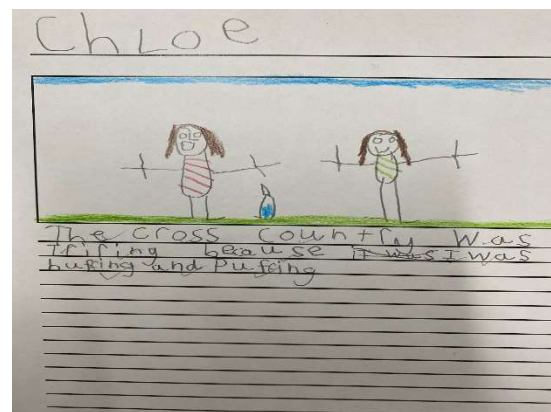 Chloe
The cross country was
triring because it was I was
huffing and Puffing